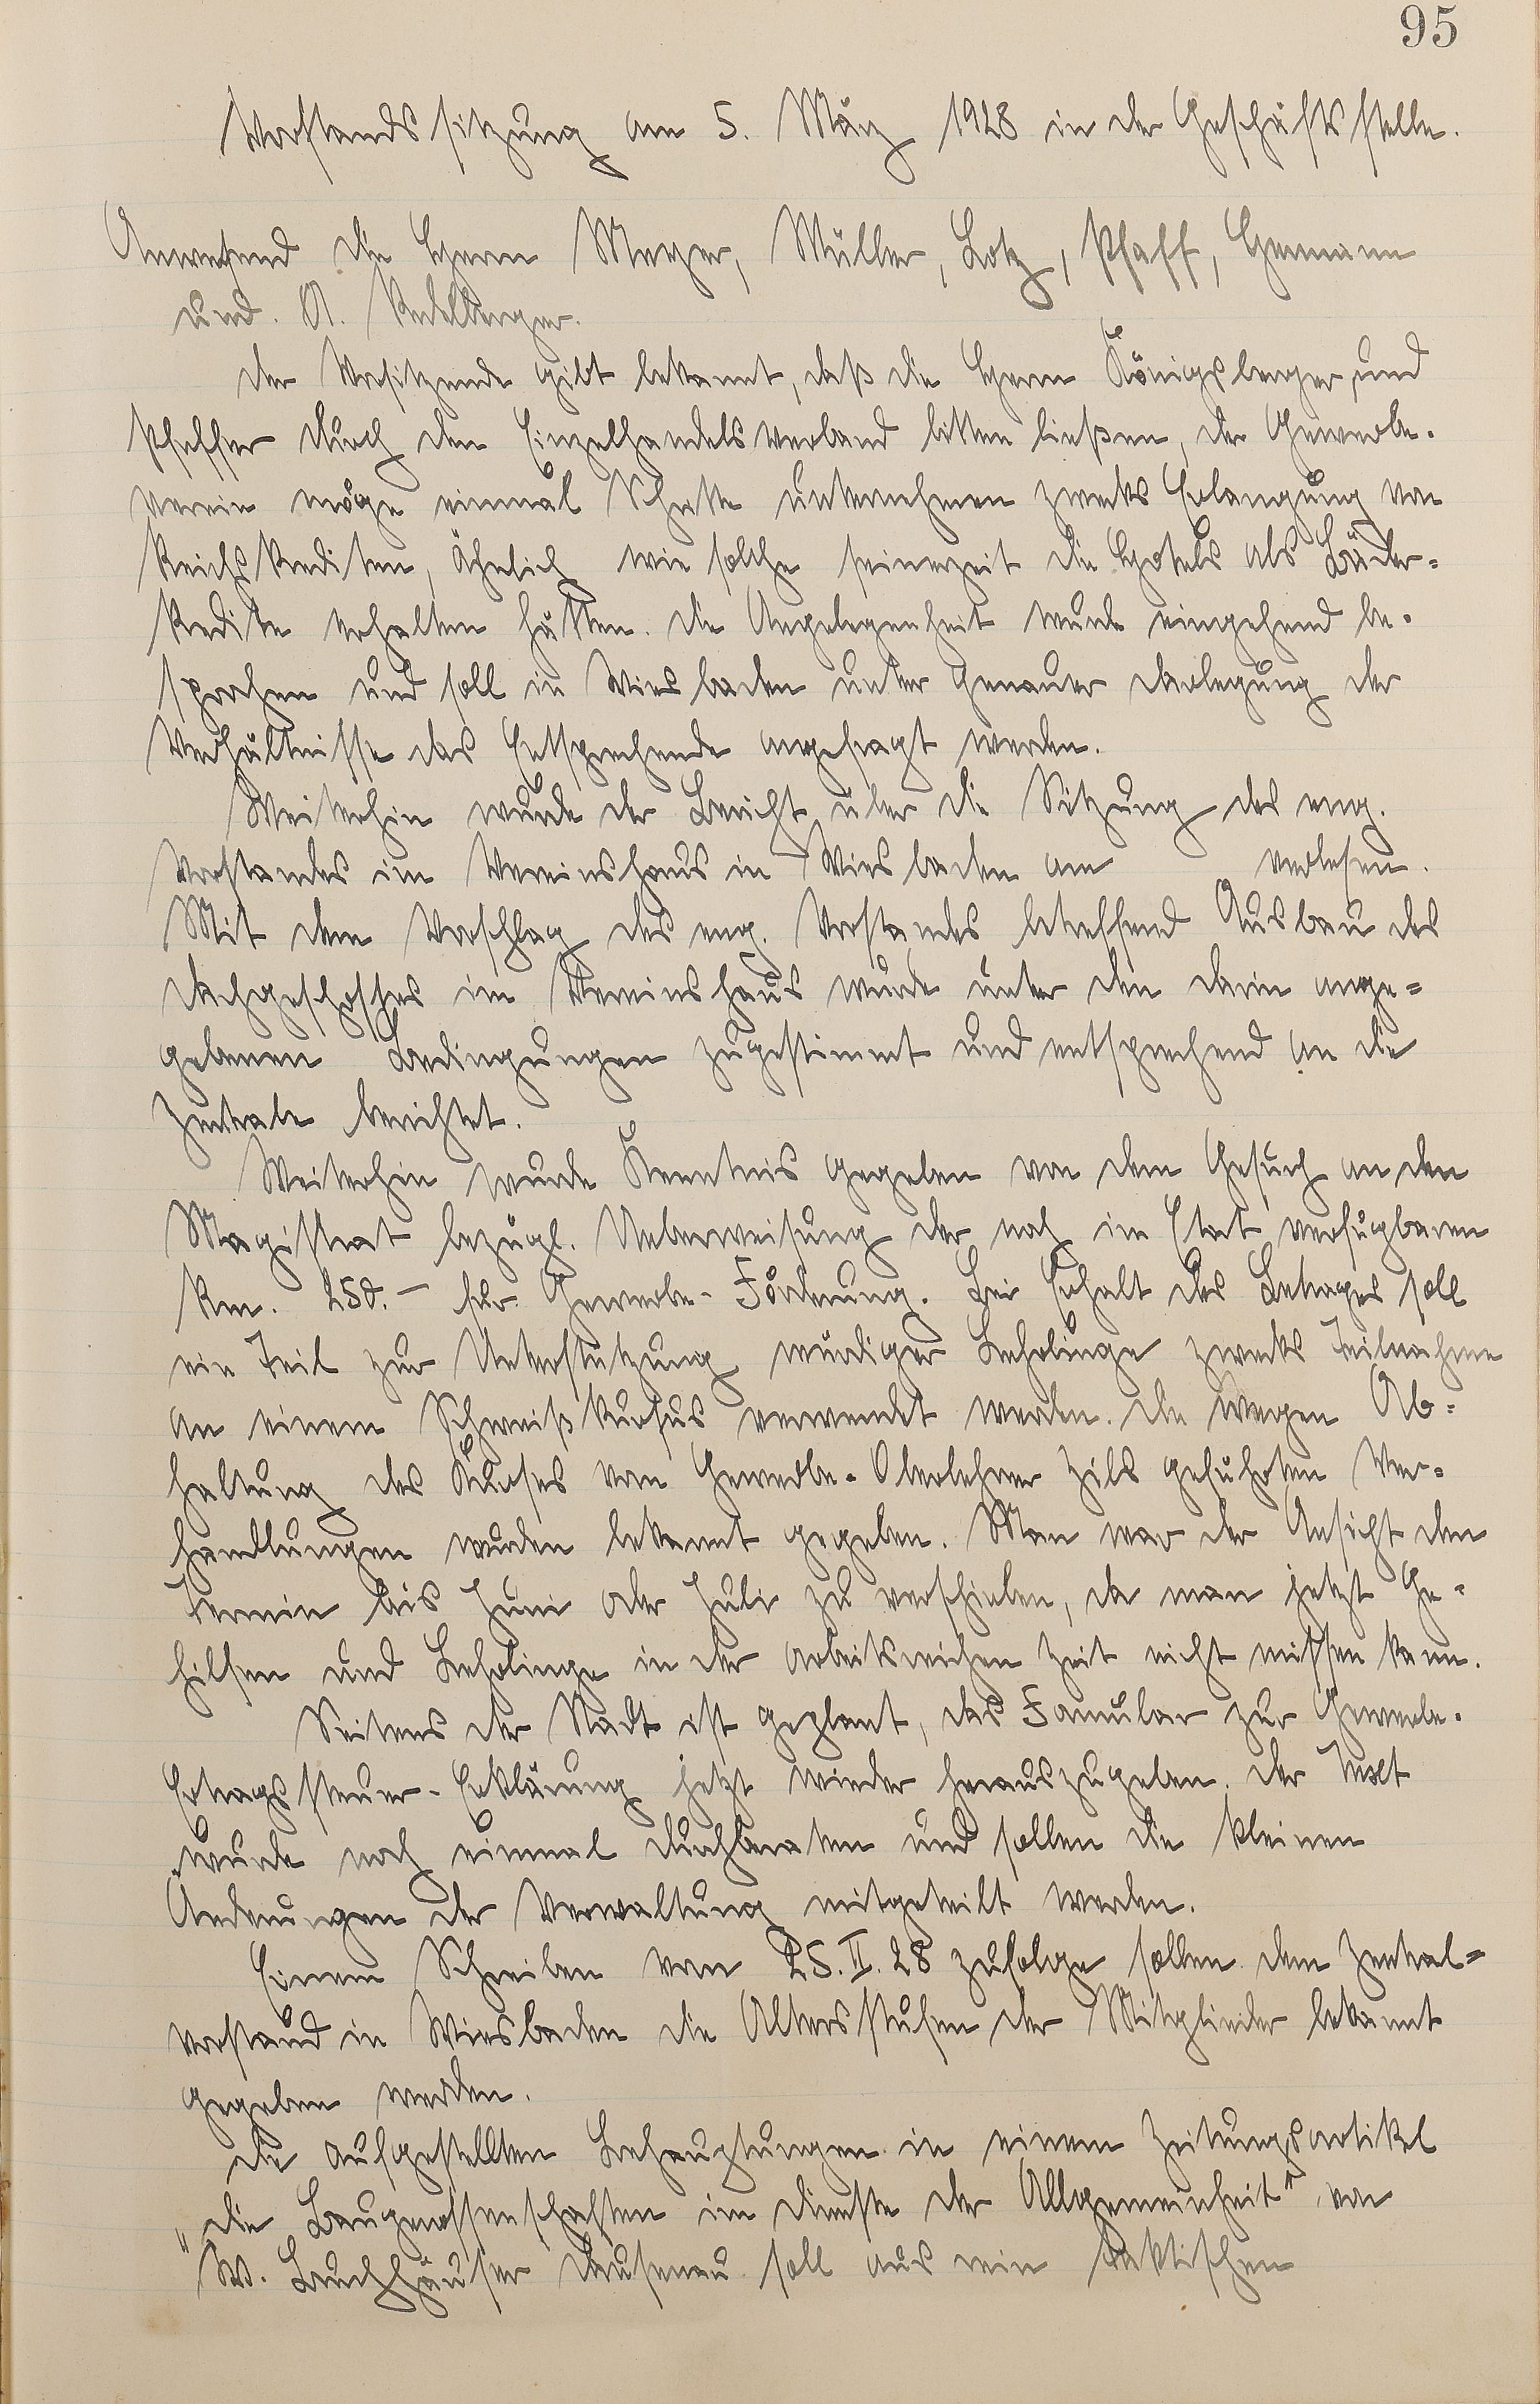 95
Vorstandssitzung am 5. März 1928 in der Geschäftsstelle.
Anwesend die Herrn Meyer, Müller, Lotz, Pfaff, Hermann
und A. Kedelberger.
Der Vorsitzende gibt bekannt, daß die Herrn Königsberger und
Pfeffer durch den Einzelhandelsverband bitten ließen, der Gewerbe-
verein möge einmal Schritte unternehmen zwecks Erlangung von
Reichskrediten, ähnlich wie solche seinerzeit die Hotels als Bäder-
kredite erhalten hätten. Die Angelegenheit wurde eingehend be-
sprochen und soll in Wiesbaden unter genauer Darlegung der
Verhältnisse das Entsprechende angefragt werden.
Weiterhin wurde der Bericht über die Sitzung des eng.
Vorstandes im Vereinshaus in Wiesbaden am verlesen.
Mit dem Vorschlag des eng. Vorstandes betreffend Ausbau des
Dachgeschosses im Vereinshaus wurde unter den darin ange-
gebenen Bedingungen zugestimmt und entsprechend an die
Zentrale berichtet.
Weiterhin wurde Kenntnis gegeben von dem Gesuch an den
Magistrat bezügl. Ueberweisung der noch im Etat verfügbaren
Rm. 250.- für Gewerbe-Förderung. Bei Erhalt des Betrages soll
ein Teil zur Unterstützung würdiger Lehrlinge zwecks Teilnahme
an einem Schweißkursus verwendet werden. Die wegen Ab-
haltung des Kurses von Gewerbe-Oberlehrer Zils geführten Ver-
handlungen wurden bekannt gegeben. Man war der Ansicht den
Termin bis Juni oder Juli zu verschieben, da man jetzt Ge-
hilfen und Lehrlinge in der arbeitsreichen Zeit nicht missen kann.
Seitens der Stadt ist geplant, das Formular zur Gewerbe-
Ertragssteuer-Erklärung jetzt wieder herauszugeben. Der Text
wurde noch einmal durchberaten und sollen die kleinen
Änderungen der Verwaltung mitgeteilt werden.
Einem Schreiben vom 25.II.28 zufolge sollen dem Zentral-
vorstand in Wiesbaden die Altersstufen der Mitglieder bekannt
gegeben werden.
Die aufgestellten Behauptungen in einem Zeitungsartikel
„Die Baugenossenschaften im Dienste der Allgemeinheit“ von
W. Buchhäuser Dausenau soll aus rein taktischen